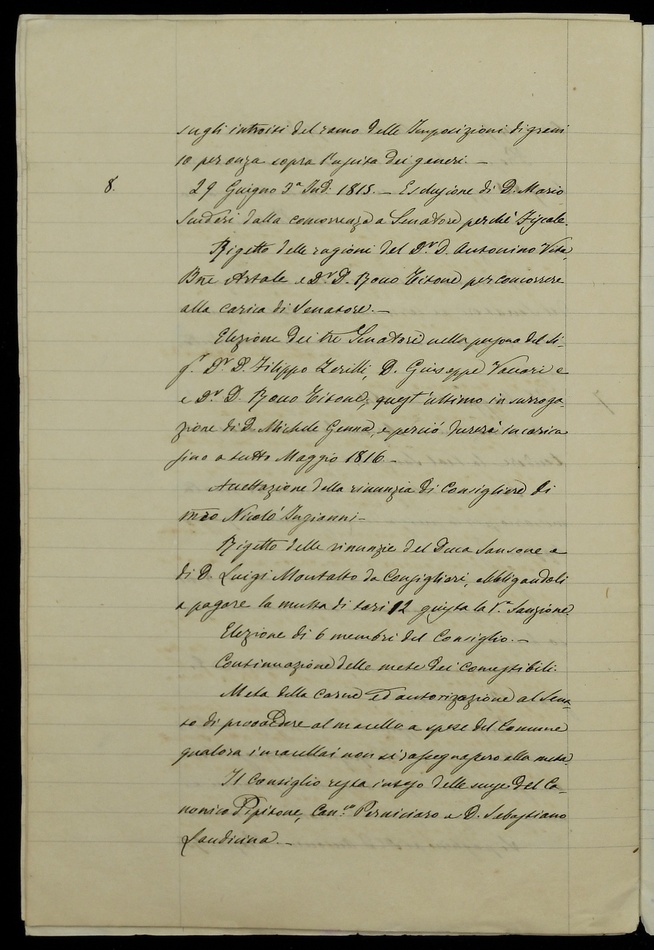 sugli introiti del ramo delle Imposizioni di grani
10 per onza sopra l'uscita dei generi. —
8.
29 Giugno 3ª Ind. 1815. — Esclusione di D. Mario
dalla concorrenza a Senatore perchè Fiscale.
Rigetto delle ragioni del Dr. D. Antonino Vito
Bne Artale e Dr. D. Bono Titone per concorrere
alla carica di Senatore. —
Elezione dei tre Senatore nella persona del Si-
gr. Dr. D. Filippo Zerilli, D. Giuseppe Vaccari e
e Dr. D. Bono Titone, quest'ultimo in surroga-
zione di D. Michele Genna, e perciò durerà in carica
fino a tutto Maggio 1816 —
Accettazione della rinunzia di Consigliere di
Nicolò Ingianni —
Rigetto delle rinunzie del Duca Sansone e
di D. Luigi Montalto da Consigliari, obbligandoli
a pagare la multa di tarì 12 giusta la Sanzione
Elezione di 6 membri del Consiglio. —
Continuazione delle mete dei Comestibili.
Meta della carne ed autorizazione al Sena-
to di procedere al macello a spese del Comune
qualora i macellai non si rassegnassero alla meta.
Il Consiglio resta inteso delle scuse del Ca-
nonico Pipitone, Can.co Perniciaro e D. Sebastiano
Laudicina. —